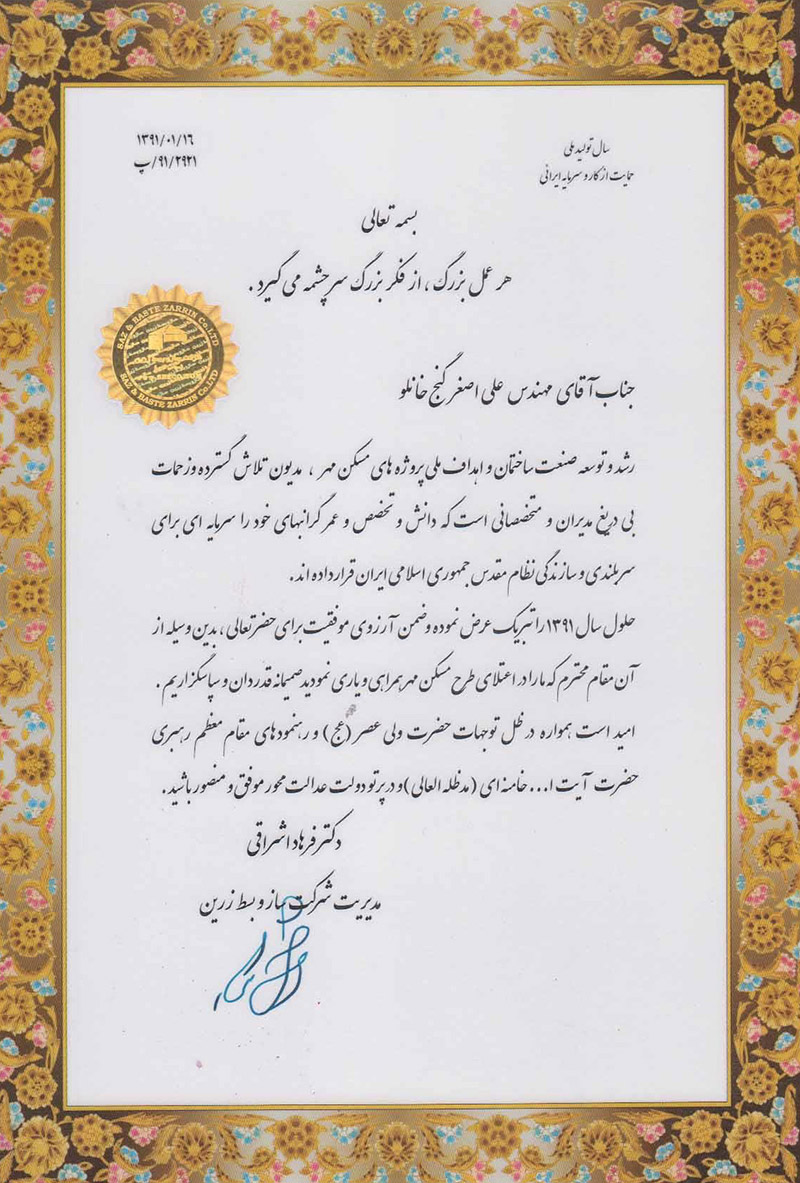 سال تولید ملی
حمایت از کار و سرمایه ایرانی
۱۳۹۱/۰۱/۱۶
۹۱/۲۹۲۱/پ
بسمه تعالی
هر عمل بزرگ ، از فکر بزرگ سرچشمه می گیرد .
SAZ & BASTE ZARRIN Co.LTD
SAZ & BASTE ZARRIN Co.LTD
جناب آقای مهندس علی اصغر گنج خانلو
رشد و توسعه صنعت ساختمان و اهداف ملی پروژه های مسکن مهر ، مدیون تلاش گسترده و زحمات
بی دریغ مدیران و متخصصانی است که دانش و تخصص و عمر گرانبهای خود را سرمایه ای برای
سربلندی و سازندگی نظام مقدس جمهوری اسلامی ایران قرار داده اند .
حلول سال ۱۳۹۱ را تبریک عرض نموده و ضمن آرزوی موفقیت برای حضرتعالی ، بدین وسیله از
آن مقام محترم که ما را در اعتلای طرح مسکن مهر همراهی و یاری نمودید صمیمانه قدردان و سپاسگزاریم .
امید است همواره در ظل توجهات حضرت ولی عصر (عج) و رهنمودهای مقام معظم رهبری
حضرت آیت ا... خامنه ای (مدظله العالی) و در پرتو دولت عدالت محور موفق و منصور باشید .
دکتر فرهاد اشراقی
مدیریت شرکت ساز و بسط زرین